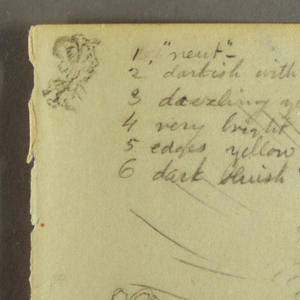 1. "neut"-
2. darkish with
3 dazzling y
4 very bright
5 edges yellow
6 dark bluish